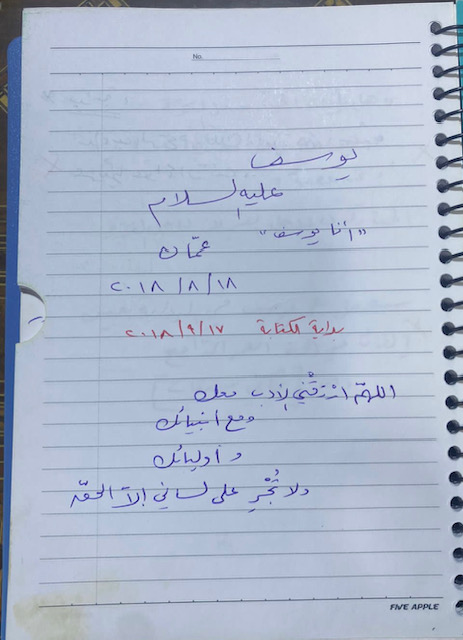 No.
يوسف
عليه السلام
"أنا يوسف"
عمّان
٢٠١٨/٨/١٨
بداية الكتابة ٢٠١٨/٩/١٧
اللهمّ ارْزقْني الأدب معك
ومع أنبيائك
وأوليائك
ولا تُجْرِ على لساني إلاّ الحقّ
FIVE APPLE